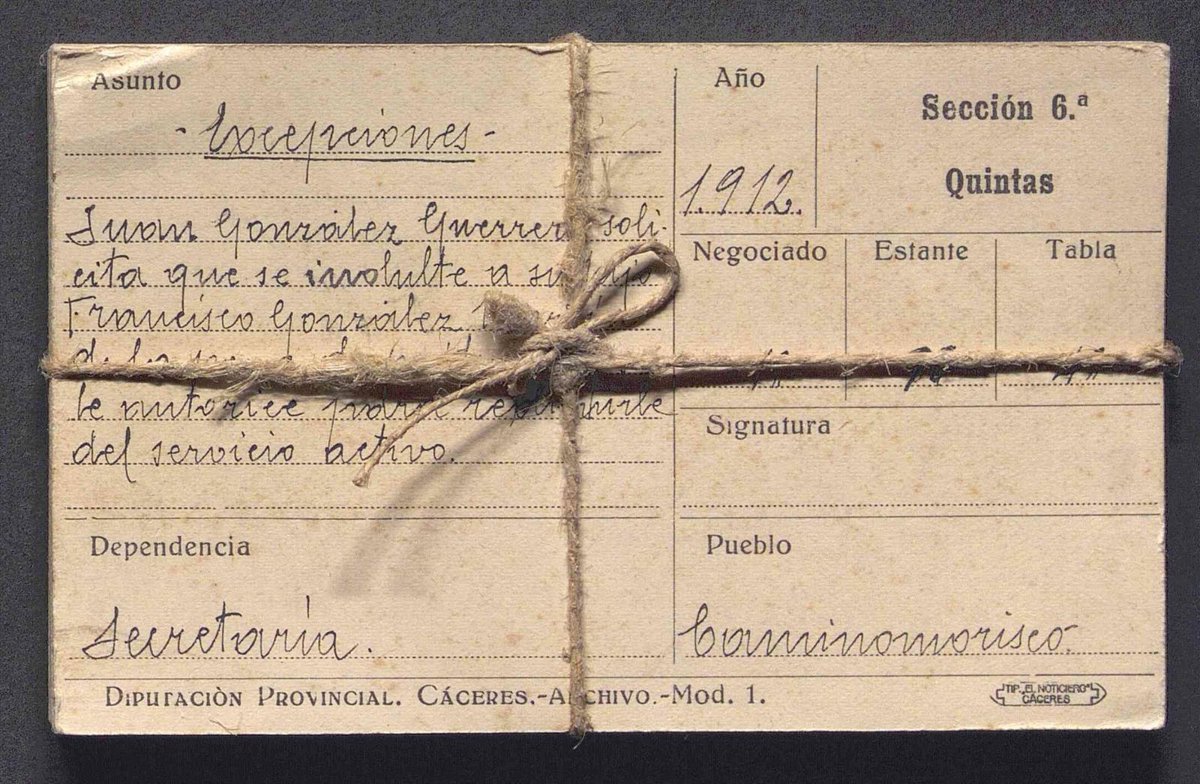 Asunto
- Excepciones -
Juan González Guerrero soli-
cita que se indulte a su hijo
Francisco González
le autorice para
del servicio activo.
Dependencia
Secretaría.
Año
1.912.
Sección 6.ª
Quintas
Negociado
Estante
Tabla
Signatura
Pueblo
Caminomorisco.
DIPUTACIÒN PROVINCIAL. CÁCERES.-ARCHIVO.-Mod. 1.
TIP. "EL NOTICIERO"
CÁCERES